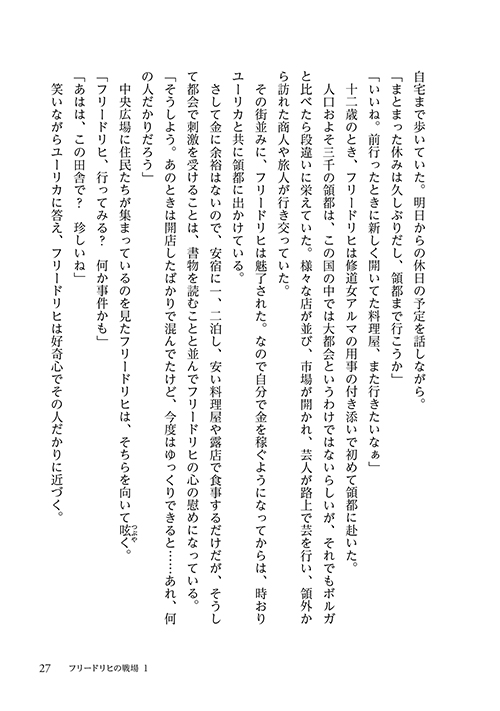 自宅まで歩いていた。明日からの休日の予定を話しながら。
「まとまった休みは久しぶりだし、領都まで行こうか」
「いいね。前行ったときに新しく開いてた料理屋、また行きたいなぁ」
十二歳のとき、フリードリヒは修道女アルマの用事の付き添いで初めて領都に赴いた。
人口およそ三千の領都は、この国の中では大都会というわけではないらしいが、それでもボルガ
と比べたら段違いに栄えていた。様々な店が並び、市場が開かれ、芸人が路上で芸を行い、領外か
ら訪れた商人や旅人が行き交っていた。
その街並みに、フリードリヒは魅了された。なので自分で金を稼ぐようになってからは、時おり
ユーリカと共に領都に出かけている。
さして金に余裕はないので、安宿に一、二泊し、安い料理屋や露店で食事するだけだが、そうし
て都会で刺激を受けることは、書物を読むことと並んでフリードリヒの心の慰めになっている。
「そうしよう。あのときは開店したばかりで混んでたけど、今度はゆっくりできると……あれ、何
の人だかりだろう」
中央広場に住民たちが集まっているのを見たフリードリヒは、そちらを向いて呟く。
つぶや
「フリードリヒ、行ってみる？　何か事件かも」
「あはは、この田舎で？　珍しいね」
笑いながらユーリカに答え、フリードリヒは好奇心でその人だかりに近づく。
27 フリードリヒの戦場 1